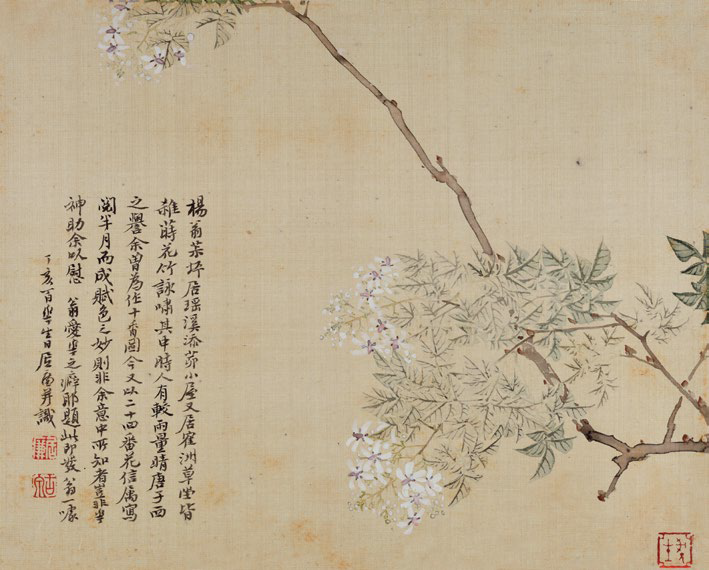 楊翁茮坪居瑤溪添茆小屋又居寉洲草堂皆
雜蒔花竹詠嘯其中時人有較雨量晴唐子西
之譽余曾為作十香圖今又以二十四番花信屬寫
閱半月而成賦色之妙則非余意中所知者豈非華
神助余以慰 翁愛華之癖耶題此即發 翁一噱
丁亥百華生日居廉并識